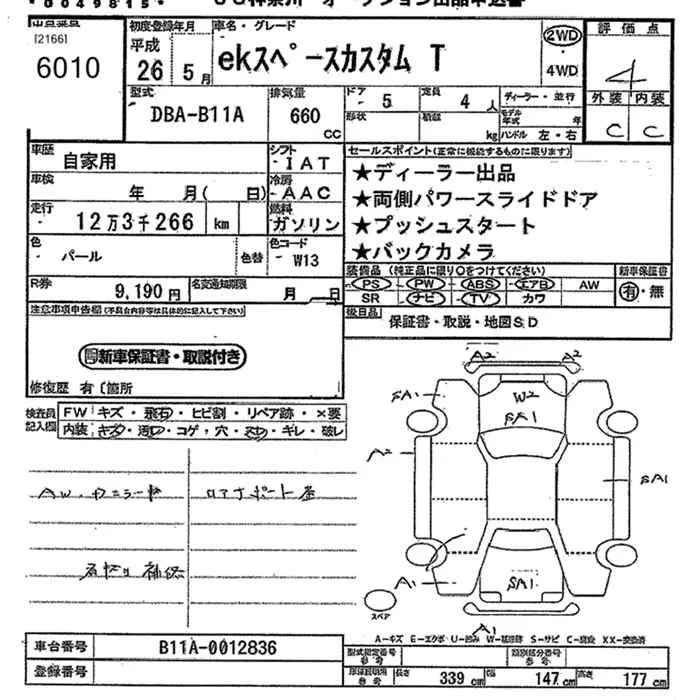 *0049815*
[2166]
6010
初度登録年月
平成
26年 5月
車名・グレード
ekスペースカスタム T
2WD
4WD
評価点
4
外装 内装
C C
型式
DBA-B11A
排気量
660
CC
ドア
5
定員
4人
形状
積載
kg
ディーラー・並行
モデル年式
年
ハンドル 左・右
車歴
自家用
シフト
IAT
車検
年 月( 日)
冷房
AAC
走行
12万3千266 km
燃料
ガソリン
色
パール
色替
色コード
W13
R券
9,190円
名変通知期限
月 日
セールスポイント(正常に機能するものに限ります)
★ディーラー出品
★両側パワースライドドア
★プッシュスタート
★バックカメラ
装備品 (純正品に限り○をつけてください)
PS PW ABS エアB AW
SR ナビ TV カワ
新車保証書
有・無
後日品
保証書・取説・地図SD
注意事項申告欄(不具合内容等は具体的に記入して下さい)
新車保証書・取説付き
修復歴 有〔箇所
検査員
記入欄
FW キズ・飛石・ヒビ割・リペア跡・×要
内装 キズ・汚レ・コゲ・穴・スレ・キレ・破レ
A2 A2
SA1
W2
SA1
A2
SA1
A1
SA1
A1
スペア
A-キズ E-エクボ U-凹み W-補修跡 S-サビ C-腐食 XX-交換済
車台番号
B11A-0012836
登録番号
型式指定番号
参考
類別区分番号
参考
参考
長さ
339 cm
幅
147 cm
高さ
177 cm